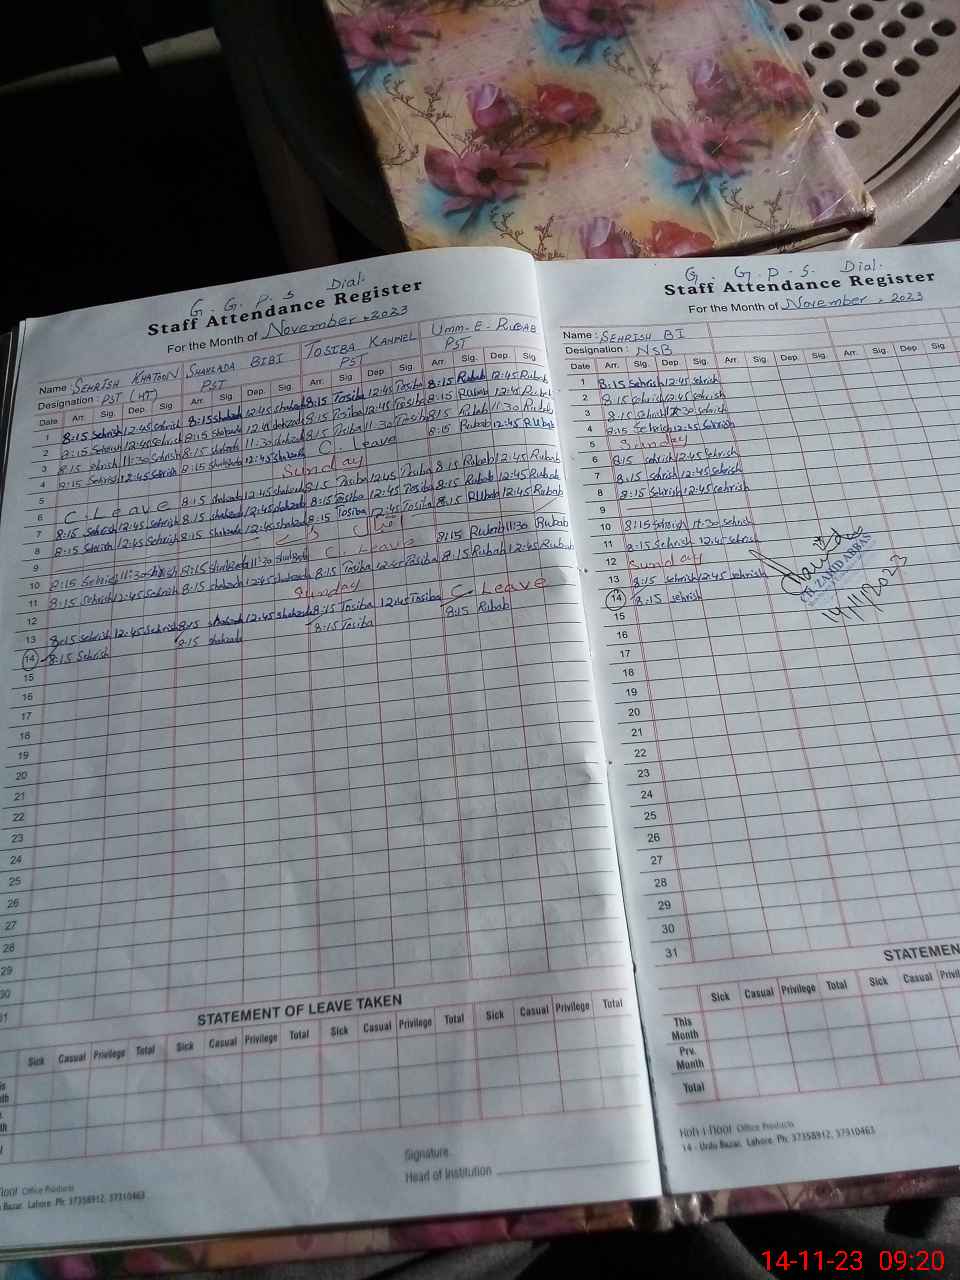 G. G. P. S Dial.
Staff Attendance Register
For the Month of November, 2023
Name : SEHRISH KHATOON SHAHZADA BIBI TOSIBA KANWEL UMM-E-RUBAB
Designation : PST (HT) PST PST PST
Date Arr. Sig. Dep. Sig. Arr. Sig. Dep. Sig. Arr. Sig. Dep. Sig. Arr. Sig. Dep. Sig.
1 8:15 Sehrish 12:45 Sehrish 8:15 Shahzada 12:45 Shahzada 8:15 Tosiba 12:45 Tosiba 8:15 Rubab 12:45 Rubab
2 8:15 Sehrish 12:45 Sehrish 8:15 Shahzada 12:45 Shahzada 8:15 Tosiba 12:45 Tosiba 8:15 Rubab 12:45 Rubab
3 8:15 Sehrish 11:30 Sehrish 8:15 Shahzada 11:30 Shahzada 8:15 Tosiba 11:30 Tosiba 8:15 Rubab 11:30 Rubab
4 8:15 Sehrish 12:45 Sehrish 8:15 Shahzada 12:45 Shahzada C. Leave 8:15 Rubab 12:45 Rubab
5 Sunday
6 C. Leave 8:15 Shahzada 12:45 Shahzada 8:15 Tosiba 12:45 Tosiba 8:15 Rubab 12:45 Rubab
7 8:15 Sehrish 12:45 Sehrish 8:15 Shahzada 12:45 Shahzada 8:15 Tosiba 12:45 Tosiba 8:15 Rubab 12:45 Rubab
8 8:15 Sehrish 12:45 Sehrish 8:15 Shahzada 12:45 Shahzada 8:15 Tosiba 12:45 Tosiba 8:15 Rubab 12:45 Rubab
9
10 8:15 Sehrish 11:30 Sehrish 8:15 Shahzada 11:30 Shahzada C. Leave 8:15 Rubab 11:30 Rubab
11 8:15 Sehrish 12:45 Sehrish 8:15 Shahzada 12:45 Shahzada 8:15 Tosiba 12:45 Tosiba 8:15 Rubab 12:45 Rubab
12 Sunday
13 8:15 Sehrish 12:45 Sehrish 8:15 Shahzada 12:45 Shahzada 8:15 Tosiba 12:45 Tosiba C. Leave
14 8:15 Sehrish 8:15 Shahzada 8:15 Tosiba 8:15 Rubab
15
16
17
18
19
20
21
22
23
24
25
26
27
28
29
30
31
STATEMENT OF LEAVE TAKEN
Sick Casual Privilege Total Sick Casual Privilege Total Sick Casual Privilege Total Sick Casual Privilege Total
Signature
Head of Institution
Office Products
Bazar, Lahore. Ph: 37358912, 37310463
G. G. P. S. Dial.
Staff Attendance Register
For the Month of November, 2023
Name : SEHRISH BI
Designation : NSB
Date Arr. Sig. Dep. Sig. Arr. Sig. Dep. Sig. Arr. Sig. Dep. Sig.
1 8:15 Sehrish 12:45 Sehrish
2 8:15 Sehrish 12:45 Sehrish
3 8:15 Sehrish 11:30 Sehrish
4 8:15 Sehrish 12:45 Sehrish
5 Sunday
6 8:15 Sehrish 12:45 Sehrish
7 8:15 Sehrish 12:45 Sehrish
8 8:15 Sehrish 12:45 Sehrish
9
10 8:15 Sehrish 11:30 Sehrish
11 8:15 Sehrish 12:45 Sehrish
12 Sunday
13 8:15 Sehrish 12:45 Sehrish
14 8:15 Sehrish
14/11/2023
15
16
17
18
19
20
21
22
23
24
25
26
27
28
29
30
31
STATEMENT
Sick Casual Privilege Total Sick Casual Privilege
This Month
Prv. Month
Total
Office Products
14 - Urdu Bazar, Lahore. Ph: 37358912, 37310463
14-11-23 09:20